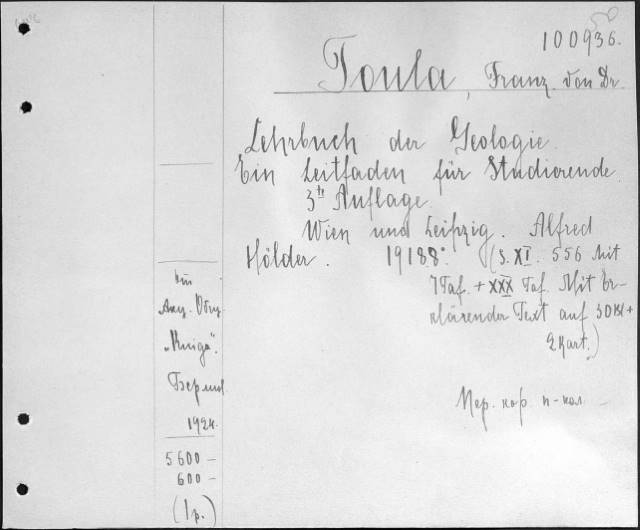 100936.
Toula, Franz von Dr.
Lehrbuch der Geologie.
Ein Leitfaden für Studierende.
3te Auflage.
Wien und Leipzig. Alfred
Hölder. 1918 8°. (S. XI. 556 Mit
1 Taf. + XXX Taf. Mit Er-
klärender Text auf 30 Bl +
2 Kart.)
Акц. Общ.
„Книга".
Берлин
1924.
5600 –
600 –
(1 р.)
Пер. кор.